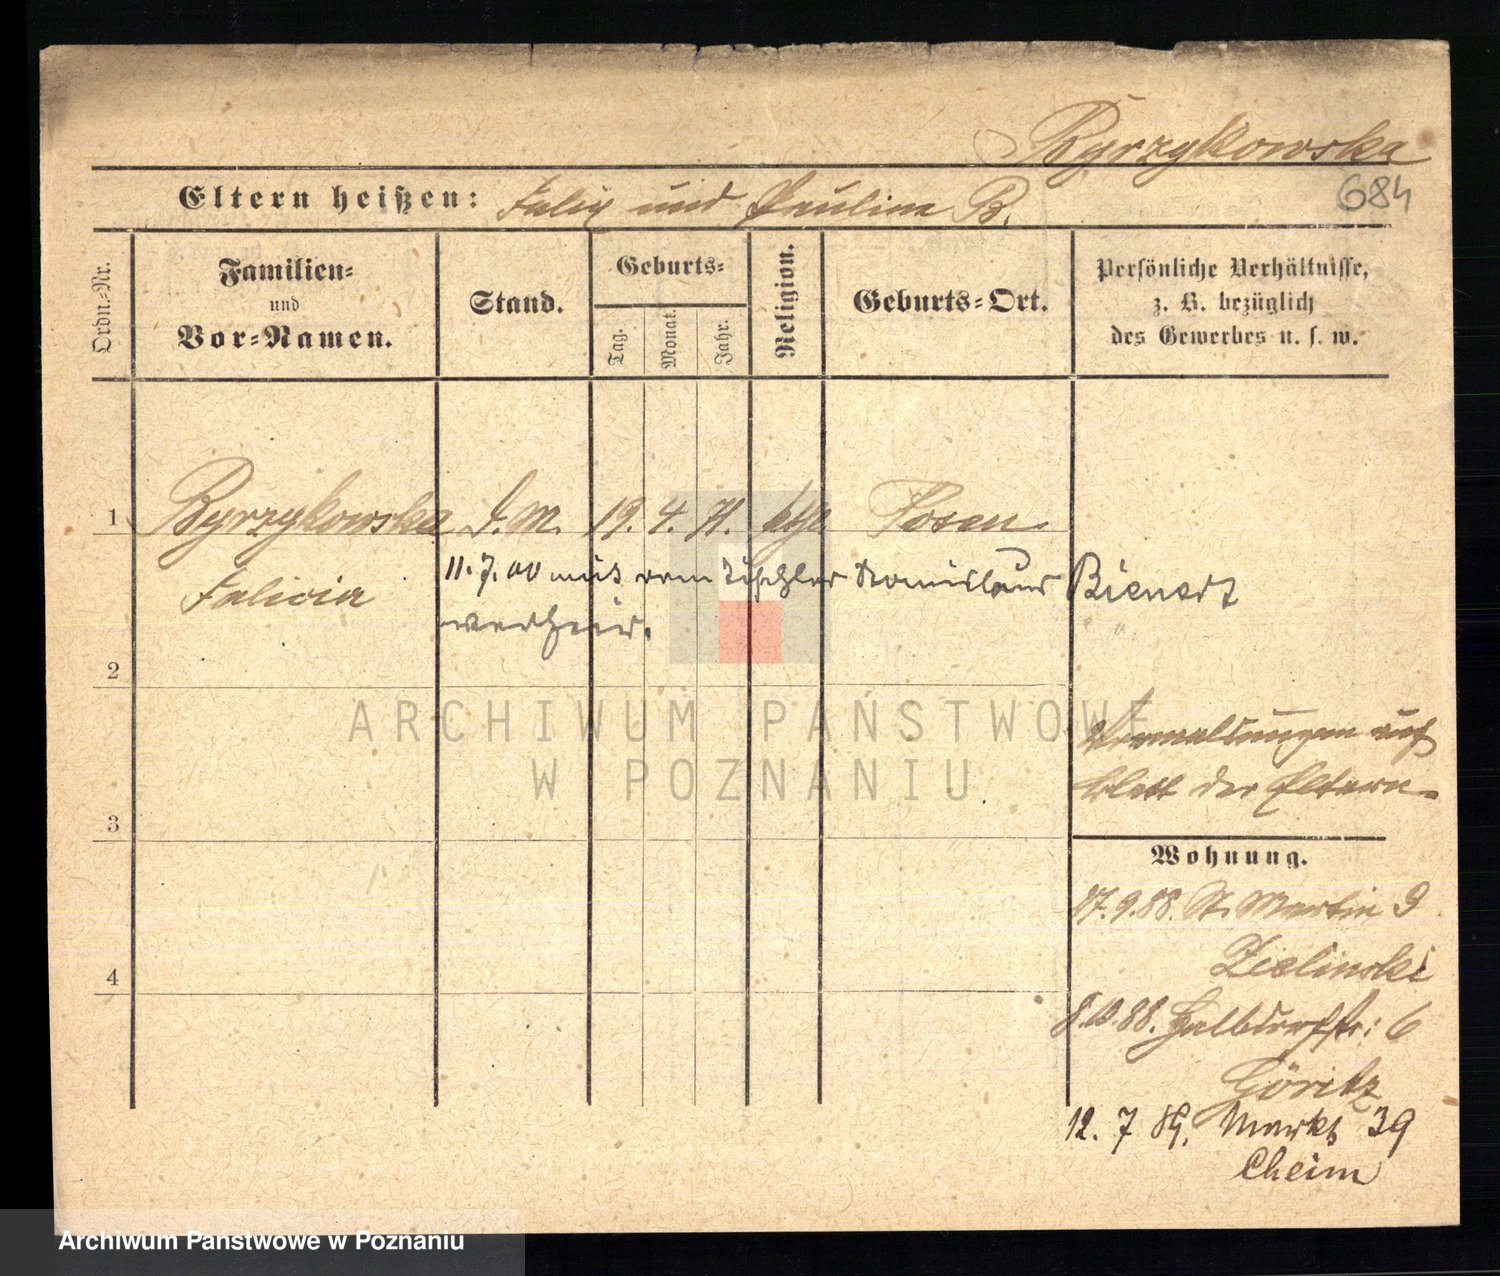 Byrzykowska
684
Eltern heißen: Felix und Paulina B.
Ordn.-Nr.
Familien-
und
Vor-Namen.
Stand.
Geburts-
Tag.
Monat.
Jahr.
Religion.
Geburts-Ort.
Persönliche Verhältnisse,
z. B. bezüglich
des Gewerbes u. s. w.
1 Byrzykowska D. M. 19. 4. 71. kth Posen.
Felicia
11.7.00 mit dem Tischler Bienert
verheir.
2
ARCHIWUM PAŃSTWOWE
W POZNANIU
auf
Blatt der Eltern.
3
Wohnung.
17.9.88. St. Martin 9
Zielinski
4
8.10.88. Halbdorfstr: 6
Göritz
12. 7 89. Markt 39
Cheim
Archiwum Państwowe w Poznaniu